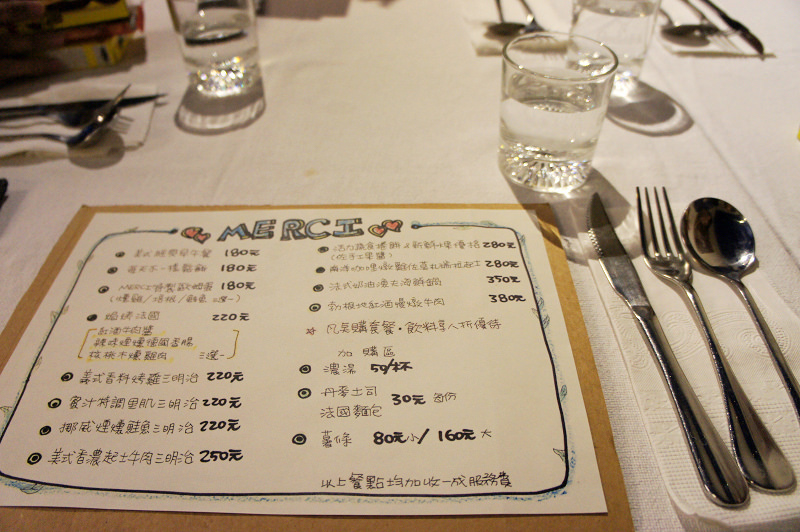 MERCI
美式經典早午餐 180元
每天不一樣鬆餅 180元
MERCI特製歐姆蛋 180元
(燻雞/培根/鮪魚 三選一)
焗烤法國 220元
紅酒牛肉醬
辣味煙燻德國香腸
核桃木燻雞肉 三選一
美式香料烤雞三明治 220元
蜜汁特調里肌三明治 220元
挪威煙燻鮭魚三明治 220元
美式香濃起士牛肉三明治 250元
活力蔬食捲餅&新鮮水果優格 280元
(佐手工果醬)
南洋咖哩嫩雞佐 280元
法式奶油濃在海鮮鍋 350元
勃根地紅酒慢燉牛肉 380元
凡是購食餐,飲料享八折優待
加購區
濃湯 50/杯
丹麥土司
法國麵包 30元 每份
薯條 80元小/ 160元 大
以上餐點均加收一成服務費